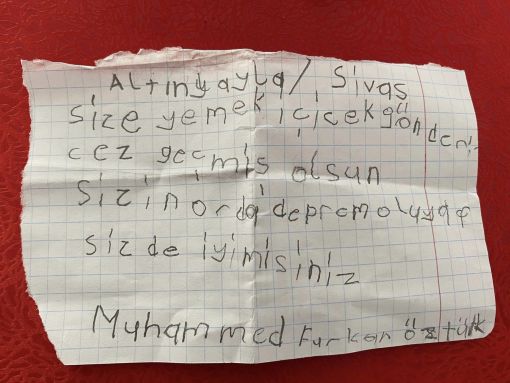 Altınyayla/Sivas
Size yemek içicekgönderi-
cez geçmiş olsun
Sizin orda depremoluyda
sizde iyimisiniz
Muhammed Furkan öztürk